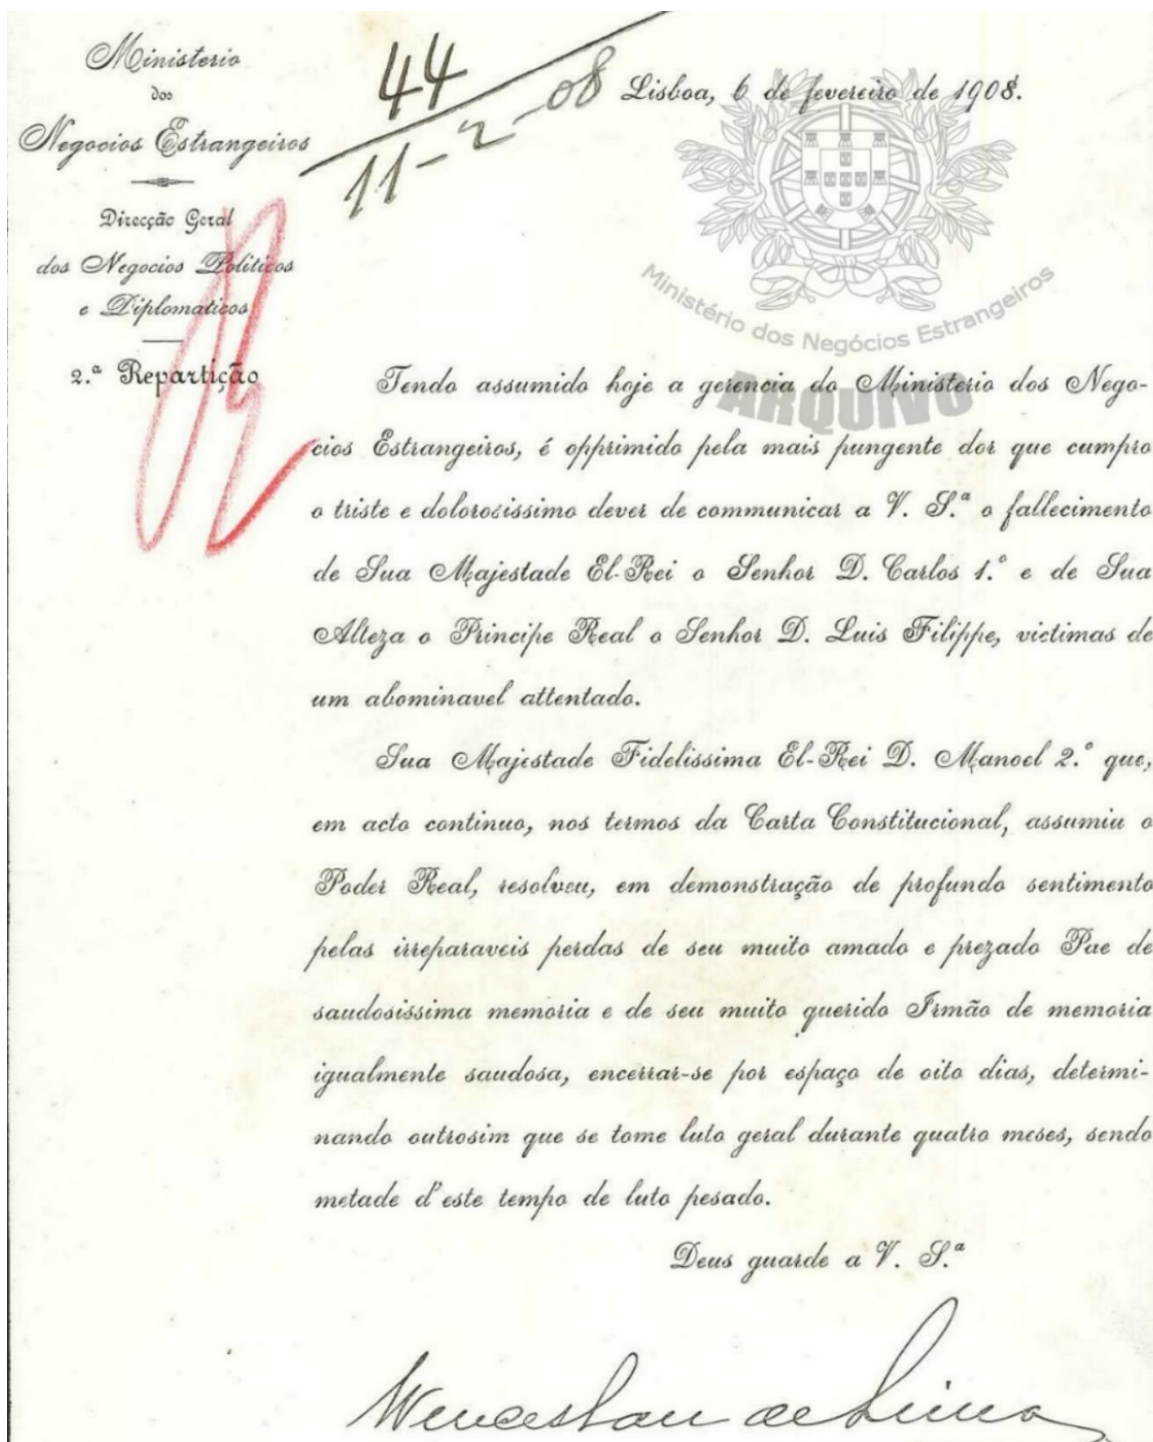 Ministerio
dos
Negocios Estrangeiros
Direcção Geral
dos Negocios Politicos
e Diplomaticos
2.ª Repartição
44
11-2-08
Lisboa, 6 de fevereiro de 1908.
Ministério dos Negócios Estrangeiros
ARQUIVO
Tendo assumido hoje a gerencia do Ministerio dos Nego-
cios Estrangeiros, é opprimido pela mais pungente dor que cumpro
o triste e dolorosissimo dever de communicar a V. S.ª o fallecimento
de Sua Majestade El-Rei o Senhor D. Carlos 1.º e de Sua
Alteza o Principe Real o Senhor D. Luis Filippe, victimas de
um abominavel attentado.
Sua Majestade Fidelissima El-Rei D. Manoel 2.º que,
em acto continuo, nos termos da Carta Constitucional, assumiu o
Poder Real, resolveu, em demonstração de profundo sentimento
pelas irreparaveis perdas de seu muito amado e prezado Pae de
saudosissima memoria e de seu muito querido Irmão de memoria
igualmente saudosa, encerrar-se por espaço de oito dias, determi-
nando outrosim que se tome luto geral durante quatro meses, sendo
metade d'este tempo de luto pesado.
Deus guarde a V. S.ª
Wenceslau de Lima